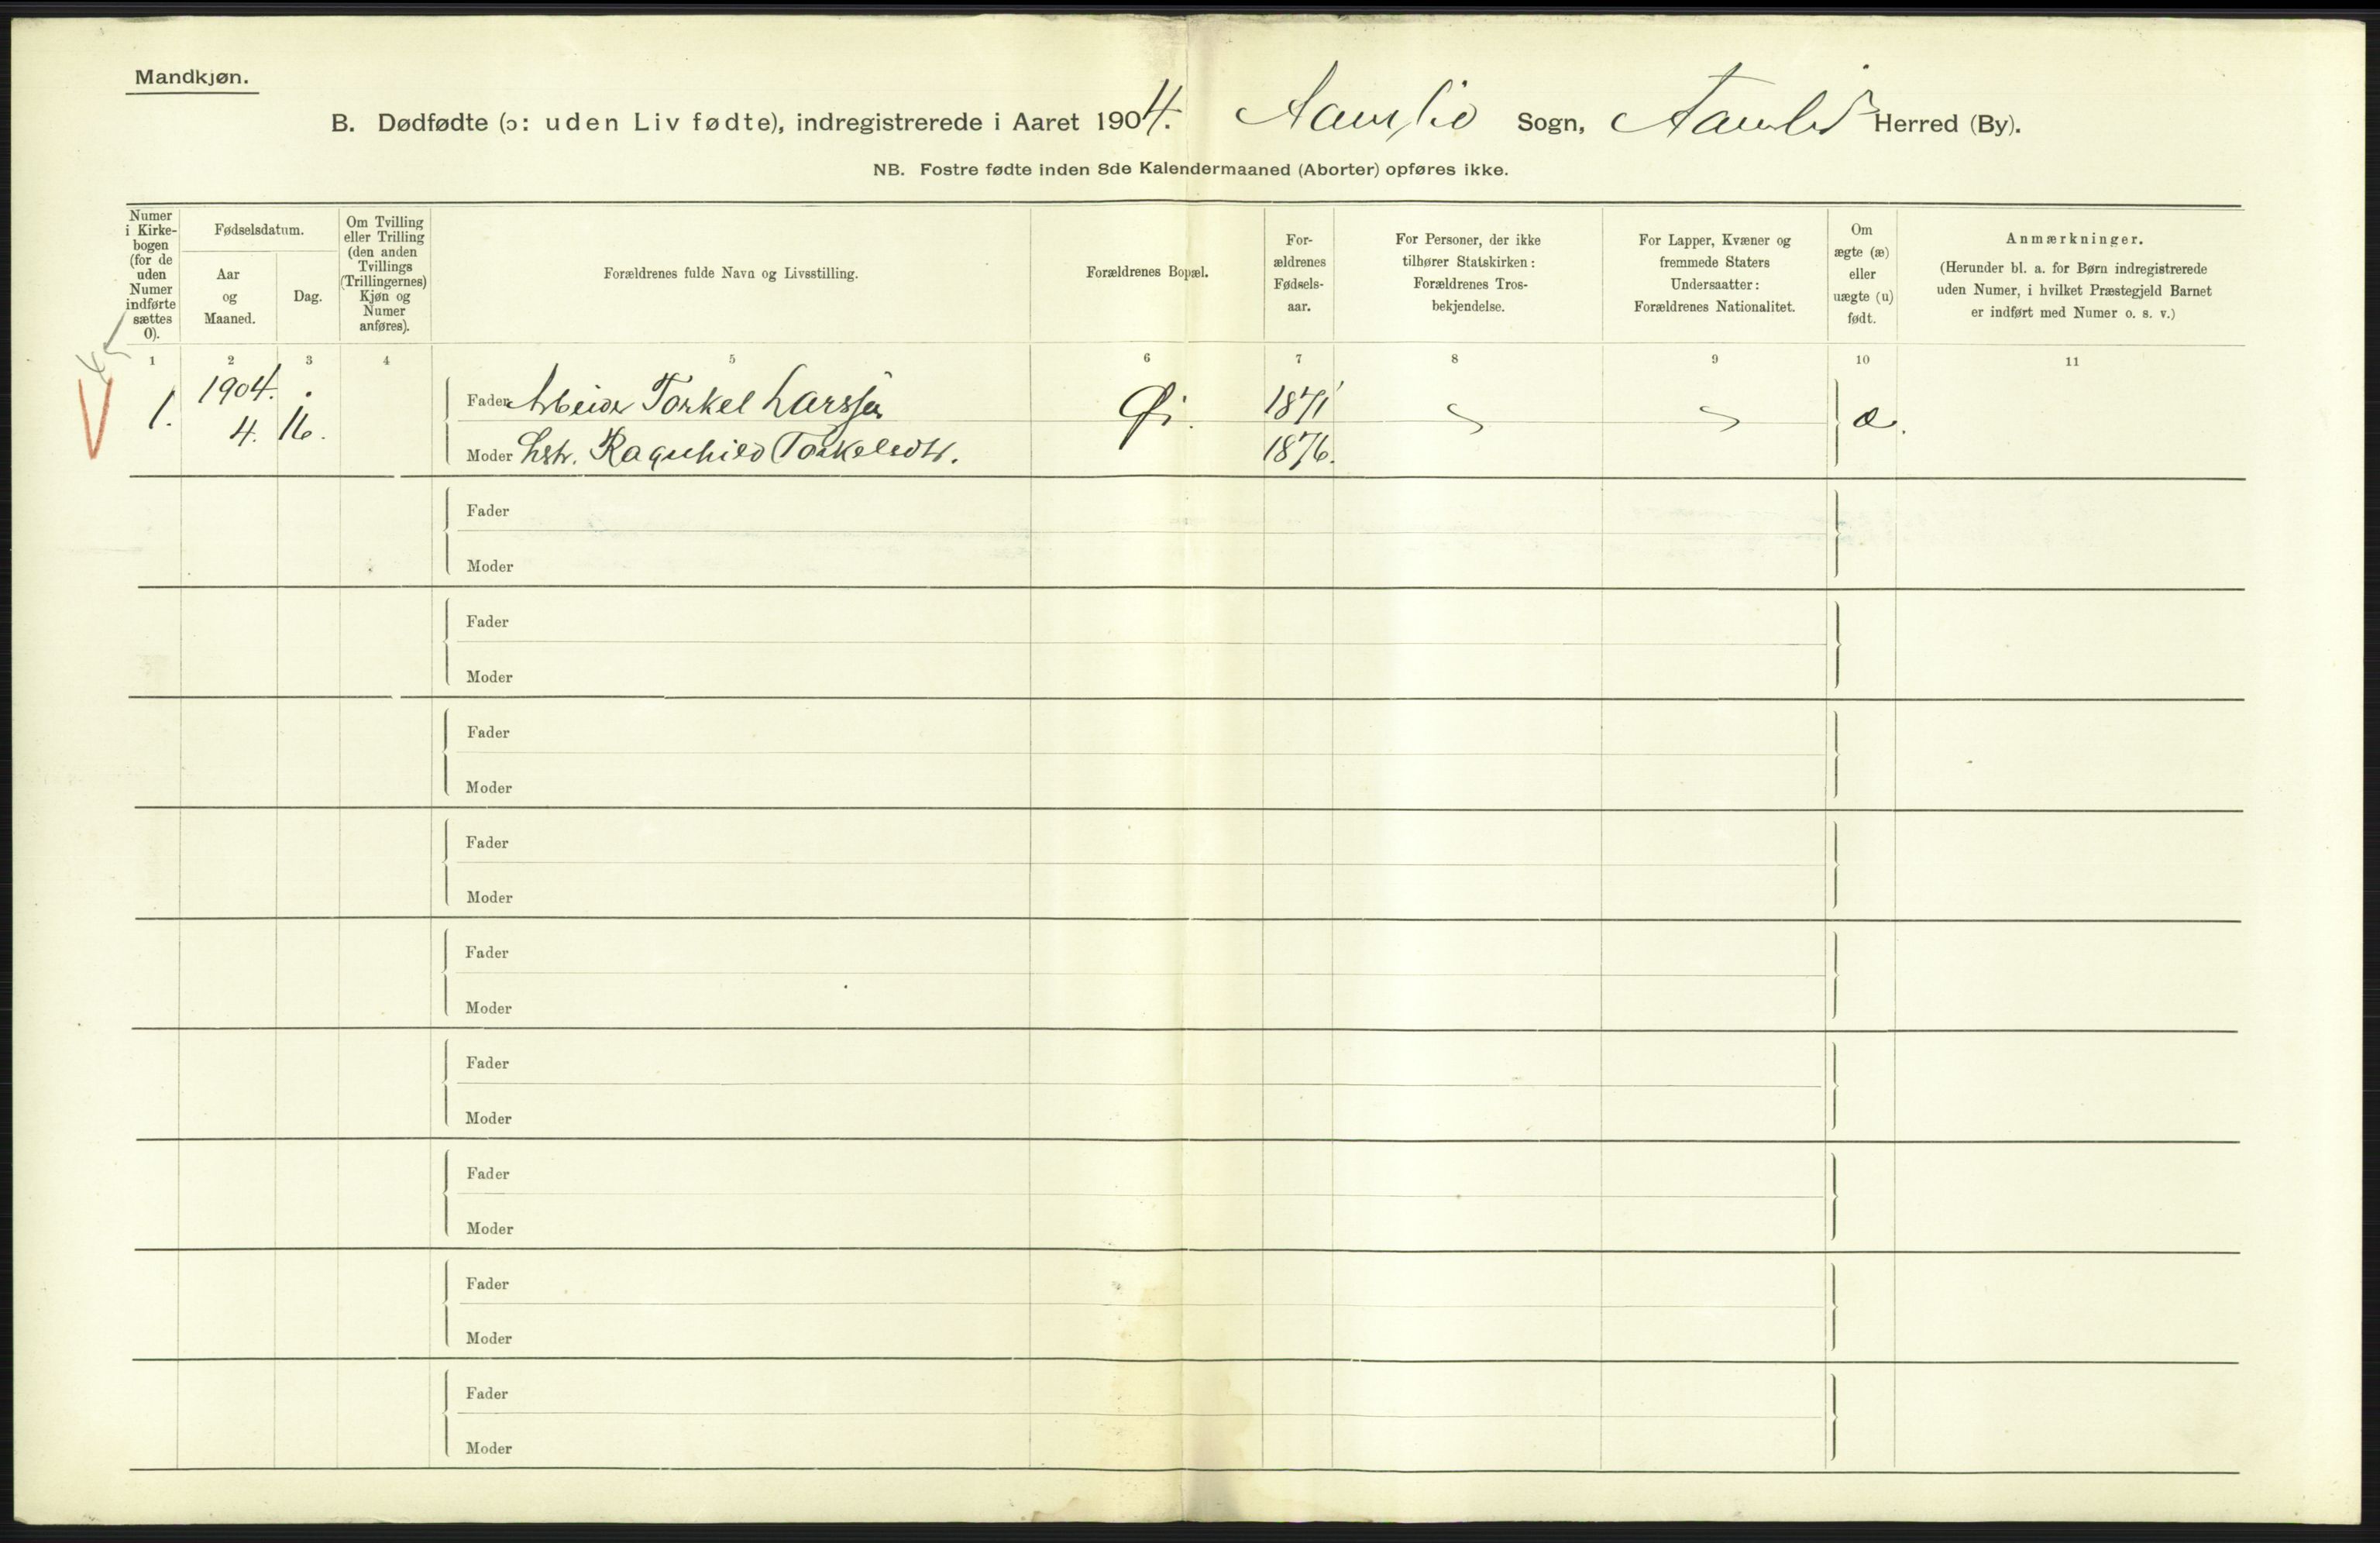 Mandkjøn.
B. Dødfødte (ɔ: uden Liv fødte), indregistrerede i Aaret 1904. Aamlid Sogn, Aamlid Herred (By).
NB. Fostre fødte inden 8de Kalendermaaned (Aborter) opføres ikke.
Numer
i Kirke-
bogen
(for de
uden
Numer
indførte
sættes
0).
Fødselsdatum.
Aar
og
Maaned.
Dag.
Om Tvilling
eller Trilling
(den anden
Tvillings
(Trillingernes)
Kjøn og
Numer
anføres).
Forældrenes fulde Navn og Livsstilling.
Forældrenes Bopæl.
For-
ældrenes
Fødsels-
aar.
For Personer, der ikke
tilhører Statskirken:
Forældrenes Tros-
bekjendelse.
For Lapper, Kvæner og
fremmede Staters
Undersaatter:
Forældrenes Nationalitet.
Om
ægte (æ)
eller
uægte (u)
født.
Anmærkninger.
(Herunder bl. a. for Børn indregistrerede
uden Numer, i hvilket Præstegjeld Barnet
er indført med Numer o. s. v.)
1 2 3 4 5 6 7 8 9 10 11
1. 1904. 4. 16.
Fader Arbeider Torkel Larssen Øi. 1871 æ.
Moder Hstr. Ragnhild Torkelsdtr. 1876.
Fader
Moder
Fader
Moder
Fader
Moder
Fader
Moder
Fader
Moder
Fader
Moder
Fader
Moder
Fader
Moder
Fader
Moder